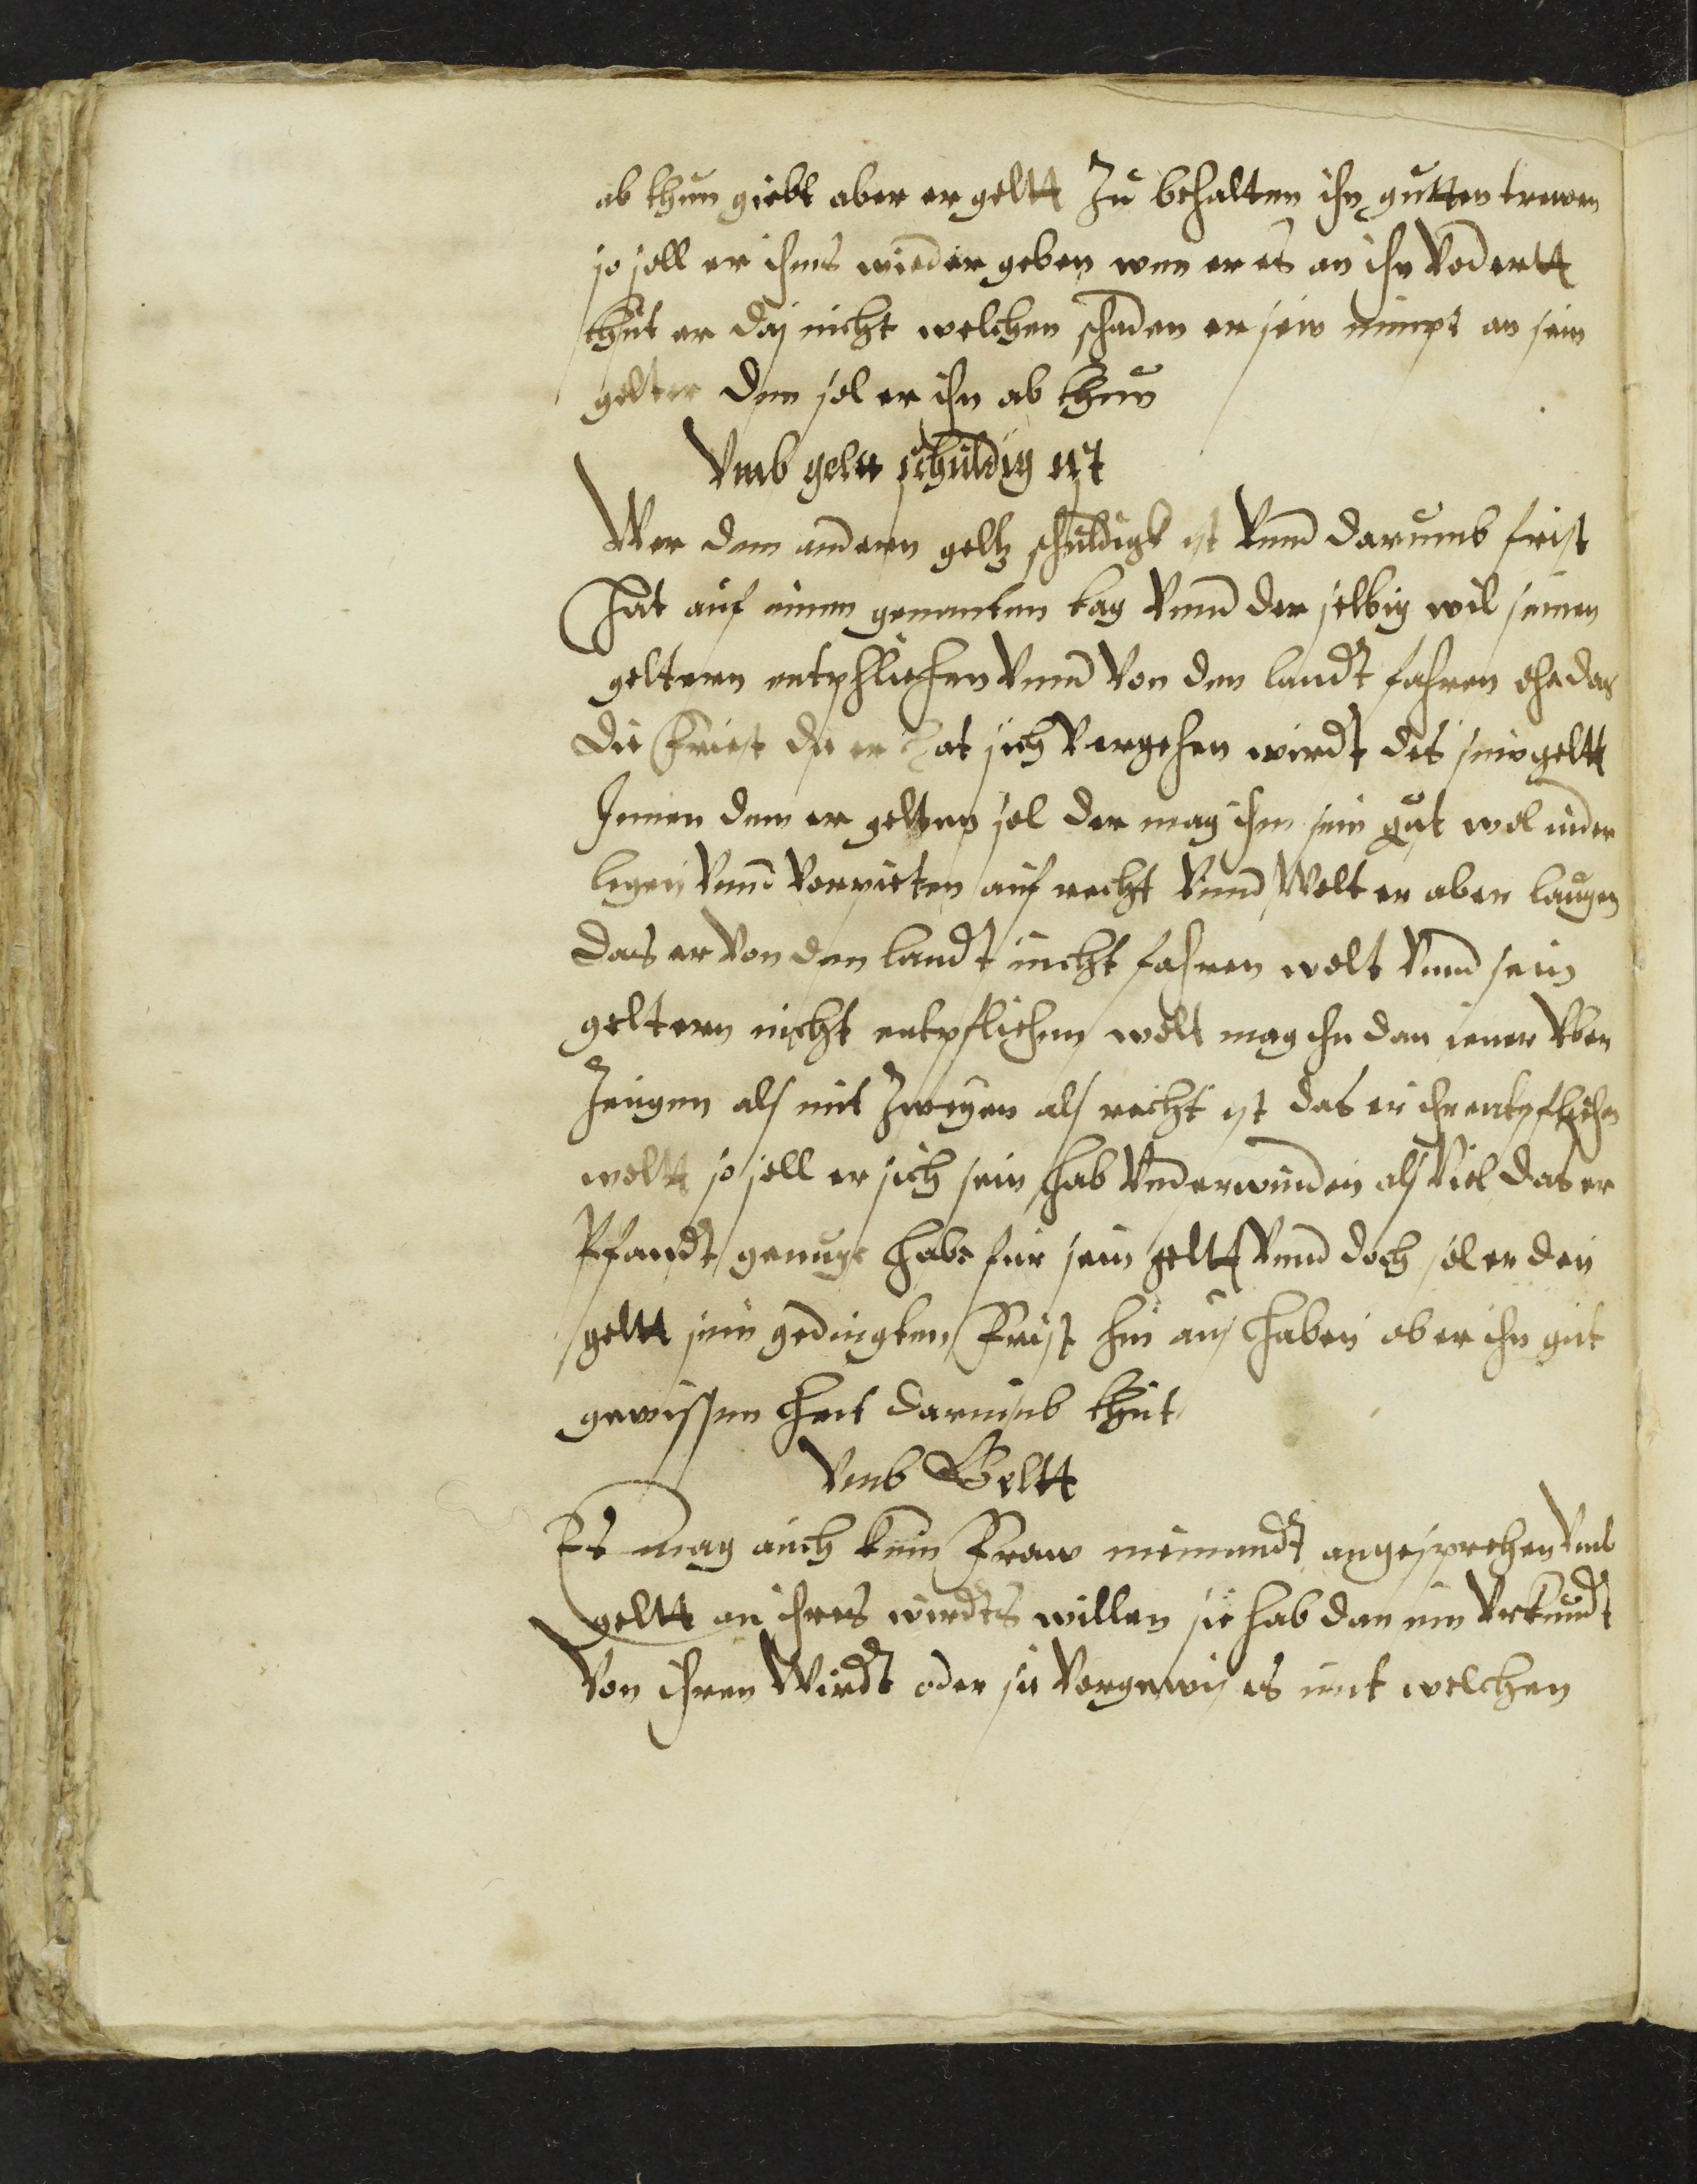 ab thun giebt aber er geltt Zu behalten ihn gutten trewen
so soll er ihms wieder geben wen er es an ihn Vodertt
thut er das nicht welchen schaden er sein nimpt an sein
gelter den sol er ihn ab thun
Vmb geltt schuldig ist
Wer dem andern geltz schuldigk ist Vnnd darumb frist
hat auf einen genanten tag Vnnd der selbig wil seinen
geltern entphliehen Vnnd Von den landt fahren ehe das
die Friest die er hat sich Vergehen wirdt des sein geltt
Innen dem er gelten sol der mag ihm sein gut wol nider
legen Vnnd Vorpieten auf recht Vnnd Wolt er aber laugen
das er Von den landt nicht fahren wolt Vnnd sein
geltern nicht entpfliehen wolt mag ihn dan iener Vber
Zeugen als mit Zweyen als recht ist das er ihr entpfliehen
woltt so soll er sich sein hab Vnderwinden als Viel das er
Pfandt genuge habe für sein geltt Vnnd doch sol er den
geltt sein gedingten Frist hin aus haben ob er ihn gut
gewissen heit darumb thut
Vmb Geltt
Es mag auch kein Fraw niemandt angesprechen Vmb
geltt an ihres wirdts willen sie hab dan ein Vrkundt
Von ihren Wirdt oder sie Vorgewis es mit welchen